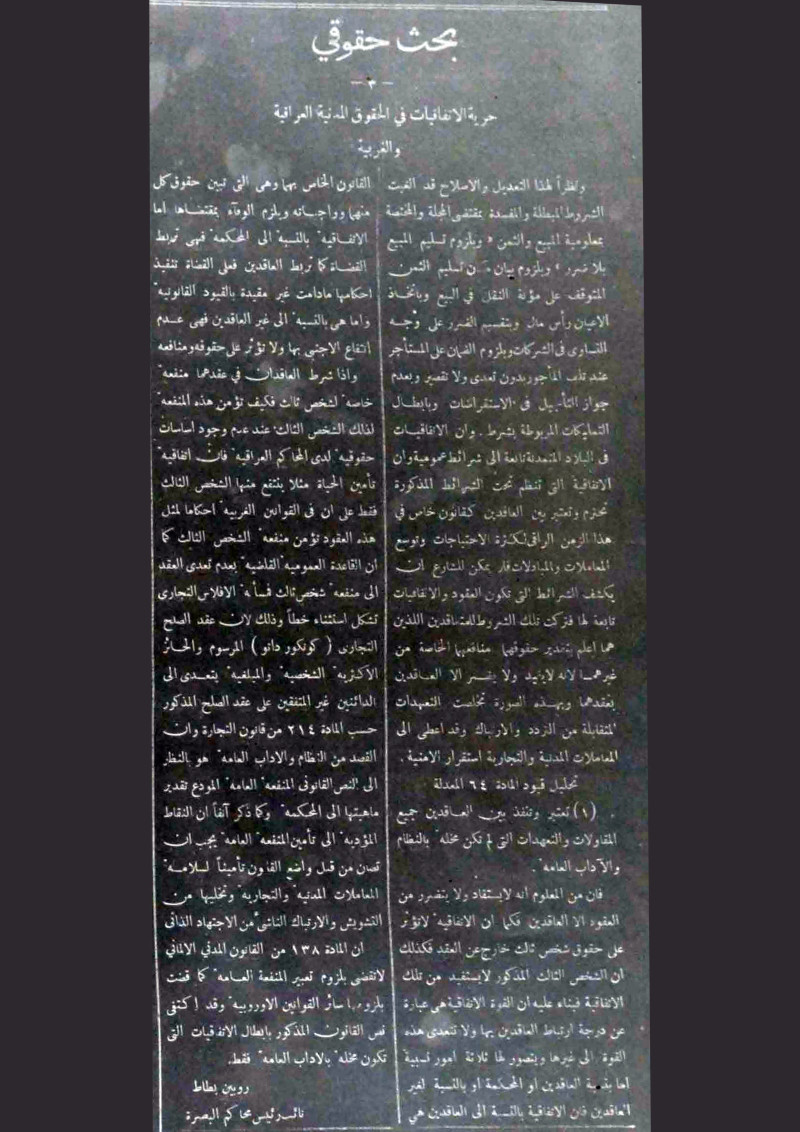 بحث حقوقي
— ٣ —
حرية الاتفاقيات في الحقوق المدنية العراقية
والغربية
ونظراً لهذا التعديل والاصلاح قد الغيت
الشروط المبطلة والمفسدة بمقتضى المجلة والمختصة
بمعلومية المبيع والثمن وبلزوم تسليم المبيع
بلا ضرر وبلزوم بيان مكان تسليم الثمن
المتوقف على مؤنة النقل في البيع وباتخاذ
الاعيان رأس مال وبتقسيم الضرر على وجه
التساوى فى الشركات وبلزوم الضمان على المستأجر
عند تلف المأجور بدون تعدى ولا تقصير وبعدم
جواز التأجيل فى الاستقراضات وبابطال
التمليكات المربوطة بشرط . وان الاتفاقيات
فى البلاد المتمدنة تابعة الى شرائط عمومية وان
الاتفاقية التى تنتظم تحت الشرائط المذكورة
تحترم وتعتبر بين العاقدين كقانون خاص في
هذا الزمن الراقى لكثرة الاحتياجات وتوسع
المعاملات والمبادلات فلم يمكن للشارع ان
يكشف الشرائط التى تكون العقود والاتفاقيات
تابعة لها فتركت تلك الشروط للمتعاقدين اللذين
هما اعلم بتقدير حقوقهما منافعهما الخاصة من
غيرهما لانه لا يفيد ولا يضر الا العاقدين
بعقدهما وبهذه الصورة تخلصت التعهدات
المتقابلة من التردد والارتباك وقد اعطى الى
المعاملات المدنية والتجارية استقرار الامنية .
تحليل قيود المادة ٦٤ المعدلة
(١) تعتبر وتنفذ بين العاقدين جميع
المقاولات والتعهدات التى لم تكن مخلة بالنظام
والآداب العامة .
فان من المعلوم أنه لا يستفاد ولا يتضرر من
العقود الا العاقدين فكما ان الاتفاقية لا تؤثر
على حقوق شخص ثالث خارج عن العقد فكذلك
ان الشخص الثالث المذكور لا يستفيد من تلك
الاتفاقية فبناء عليه ان القوة الاتفاقية هى عبارة
عن درجة ارتباط العاقدين بها ولا تتعدى هذه
القوة الى غيرها ويتصور لها ثلاثة امور نسبية
اما بنسبة العاقدين او المحكمة او بالنسبة لغير
العاقدين فان الاتفاقية بالنسبة الى العاقدين هي
القانون الخاص بهما وهى التى تبين حقوق كل
منهما وواجباته ويلزم الوفاء بمقتضاها اما
الاتفاقية بالنسبة الى المحكمة فهى تربط
القضاة كما تربط العاقدين فعلى القضاة تنفيذ
احكامها مادامت غير مقيدة بالقيود القانونية
واما هى بالنسبة الى غير العاقدين فهى عدم
انتفاع الاجنبى بها ولا تؤثر على حقوقه ومنافعه
واذا شرط العاقدان في عقدهما منفعة
خاصة لشخص ثالث فكيف تؤمن هذه المنفعة
لذلك الشخص الثالث عند عدم وجود اساسات
حقوقية لدى المحاكم العراقية فان اتفاقية
تأمين الحياة مثلا ينتفع منها الشخص الثالث
فقط على ان فى القوانين الغربية احكاما لمثل
هذه العقود تؤمن منفعة الشخص الثالث كما
ان القاعدة العمومية القاضية بعدم تعدى العقد
الى منفعة شخص ثالث فمسألة الافلاس التجارى
تشكل استثناء خطأ وذلك لان عقد الصلح
التجارى ( كونكورداتو ) المرسوم والحائز
الاكثرية الشخصية والمبلغية يتعدى الى
الدائنين غير المتفقين على عقد الصلح المذكور
حسب المادة ٢١٤ من قانون التجارة وان
القصد من النظام والاداب العامة هو بالنظر
الى النص القانونى المنفعة العامة المودع تقدير
ماهيتها الى المحكمة وكما ذكر آنفاً ان النقاط
المؤدية الى تأمين المنفعة العامة يجب ان
تصان من قبل واضع القانون تأميناً لسلامة
المعاملات المدنية والتجارية وتخليها من
التشويش والارتباك الناشىء من الاجتهاد الذاتى
ان المادة ١٣٨ من القانون المدني الالماني
لا تقضى بلزوم تعبير المنفعة العامة كما قضت
بلزومها سائر القوانين الاوروبية وقد اكتفى
نص القانون المذكور بابطال الاتفاقيات التى
تكون مخلة بالاداب العامة فقط .
روبين بطاط
نائب رئيس محاكم البصرة